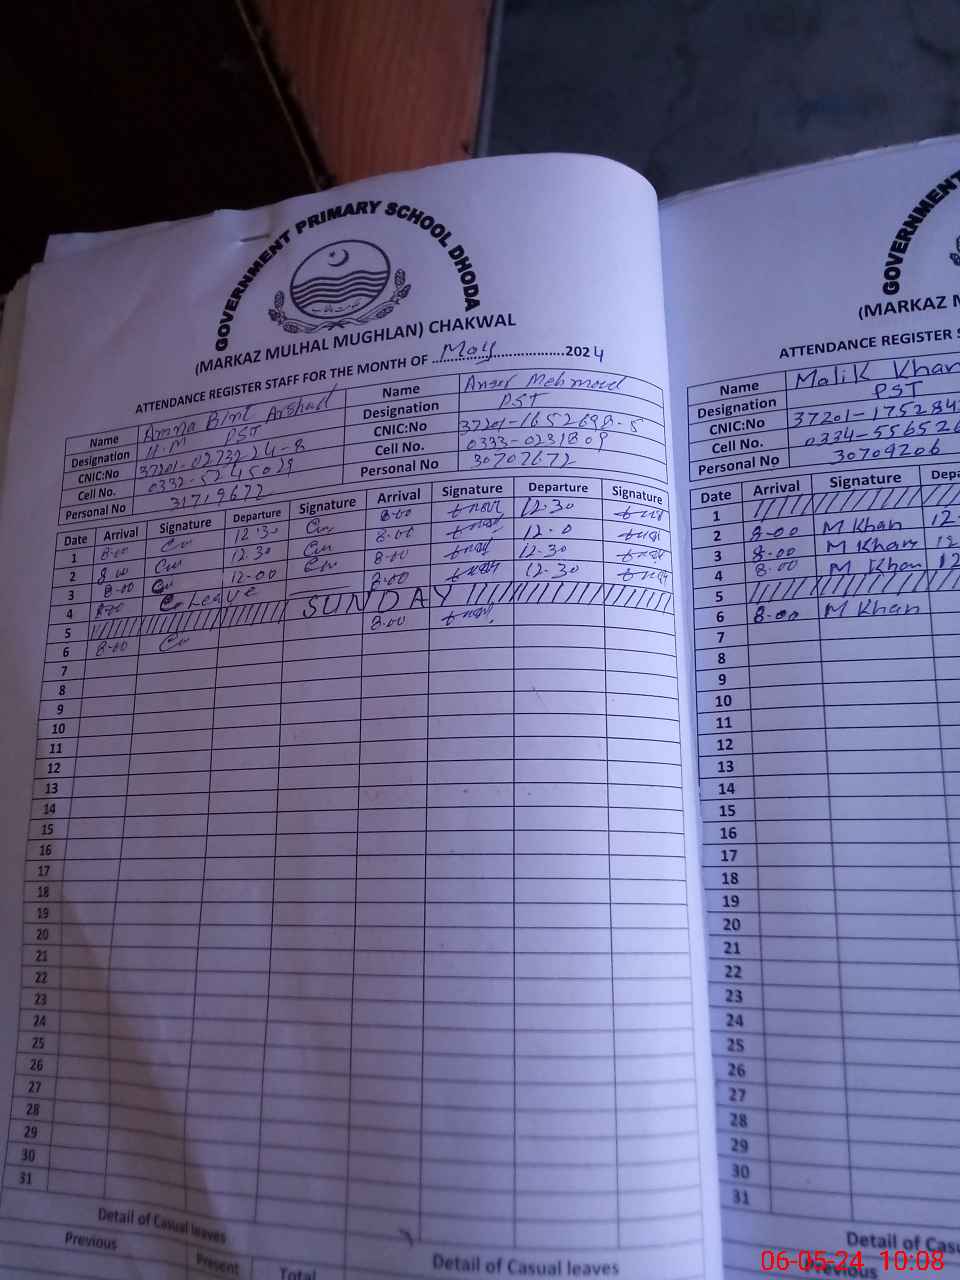 GOVERNMENT PRIMARY SCHOOL DHODA
(MARKAZ MULHAL MUGHLAN) CHAKWAL
ATTENDANCE REGISTER STAFF FOR THE MONTH OF May 2024
Name Amna Bint Arshad Name Mehmood
Designation H.M PST Designation PST
CNIC:No 37201-0273224-8 CNIC:No 37201-1652698-5
Cell No. 0332-5245029 Cell No. 0333-0231809
Personal No 31719672 Personal No 30707672
Date Arrival Signature Departure Signature Arrival Signature Departure Signature
1 8:00 12:30 8:00 12:30
2 8:00 12:30 8:00 12:0
3 8:00 12:00 8:00 12:30
4 Leave 8:00 12:30
5 SUNDAY
6 8:00 8:00
7
8
9
10
11
12
13
14
15
16
17
18
19
20
21
22
23
24
25
26
27
28
29
30
31
Detail of Casual leaves Detail of Casual leaves
Previous Present Total
GOVERNMENT
(MARKAZ M
ATTENDANCE REGISTER S
Name Malik Khan
Designation PST
CNIC:No 37201-175284
Cell No. 0334-556526
Personal No 30709206
Date Arrival Signature Depa
1
2 8:00 M Khan 12-
3 8:00 M Khan 12
4 8:00 M Khan 12
5
6 8:00 M Khan
7
8
9
10
11
12
13
14
15
16
17
18
19
20
21
22
23
24
25
26
27
28
29
30
31
Detail of Cas
Previous
06-05-24 10:08